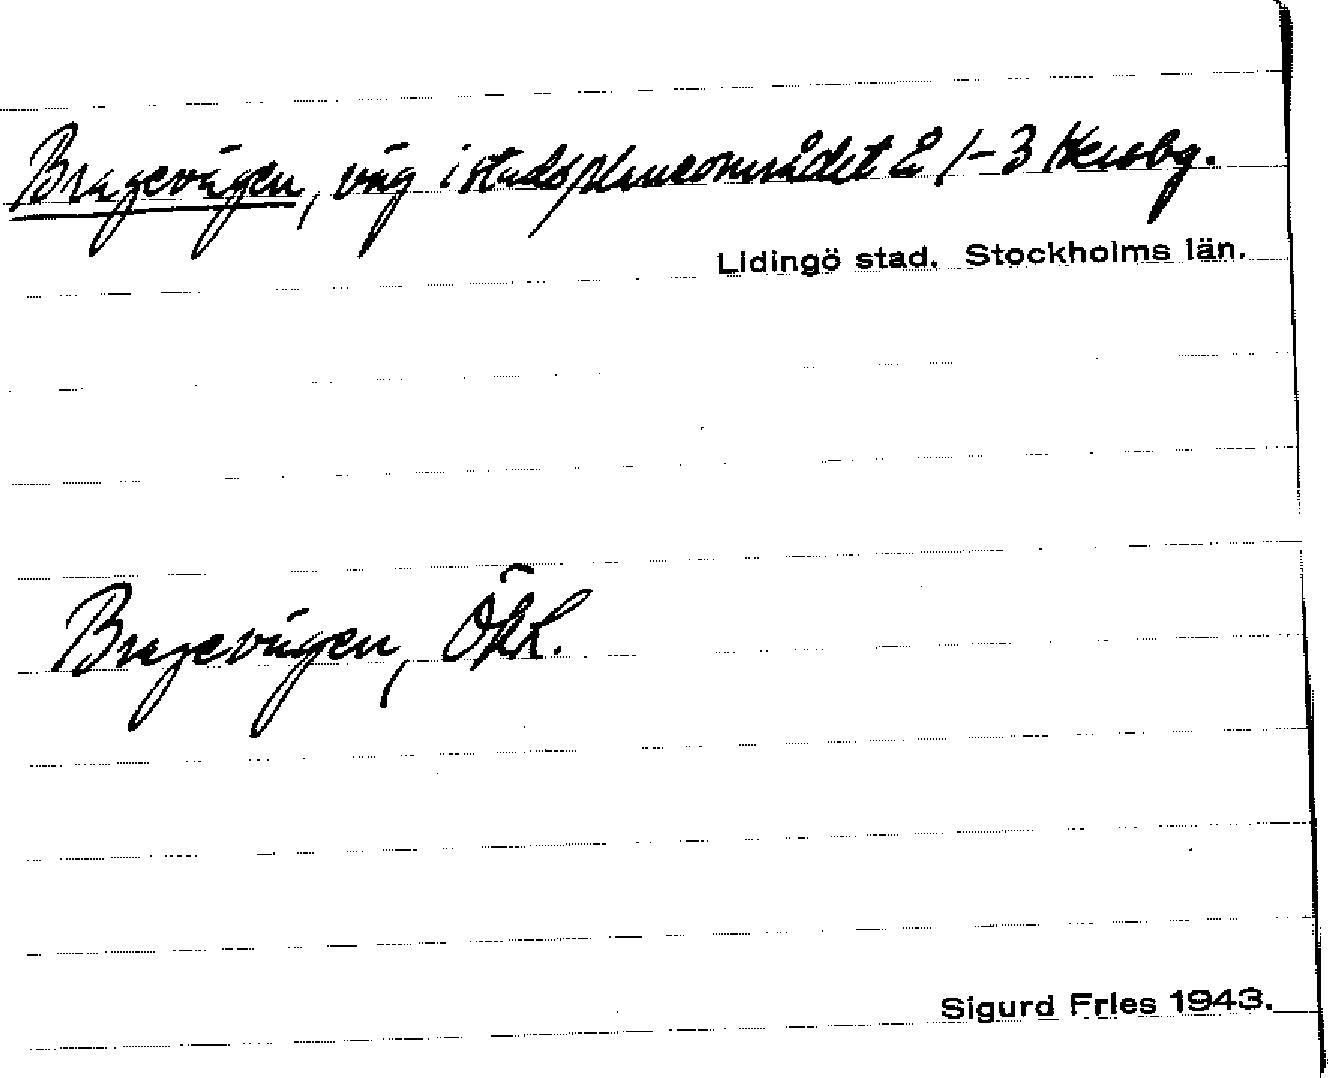 Bragevägen, väg i stadsplaneområdet å 1-3 Hersby.
Lidingö stad. Stockholms län.
Bragevägen,
Sigurd Fries 1943.